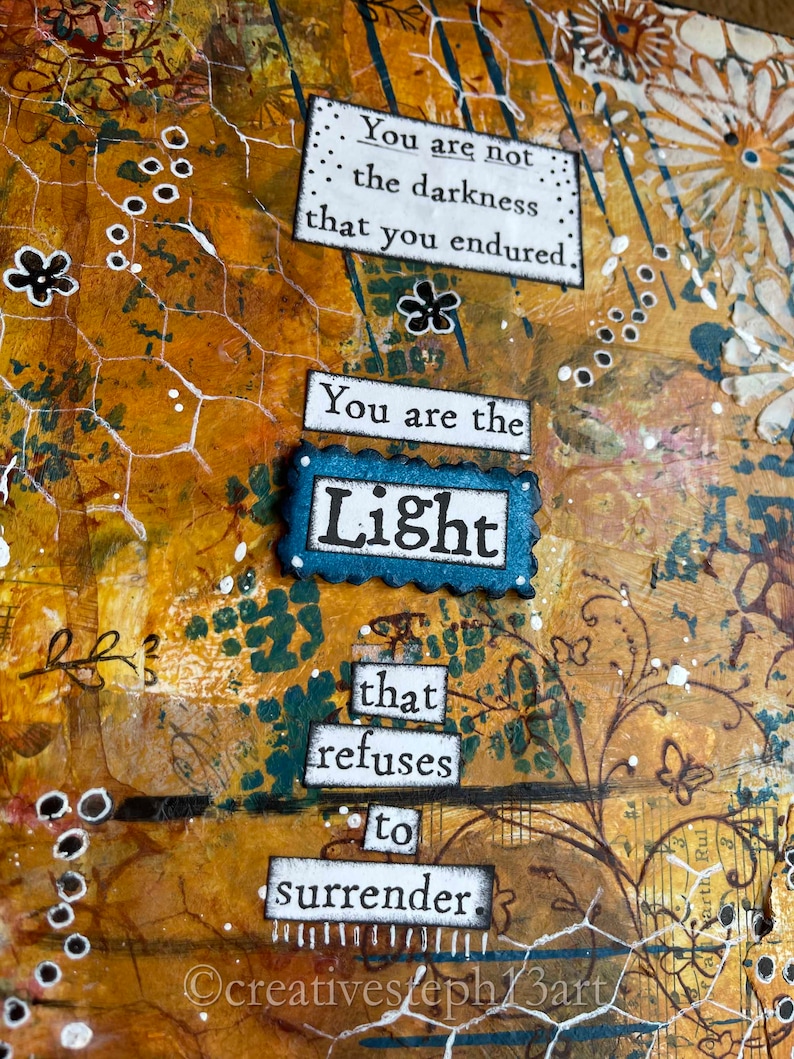 You are not
the darkness
that you endured.
You are the
Light
that
refuses
to
surrender.
©creativesteph13art